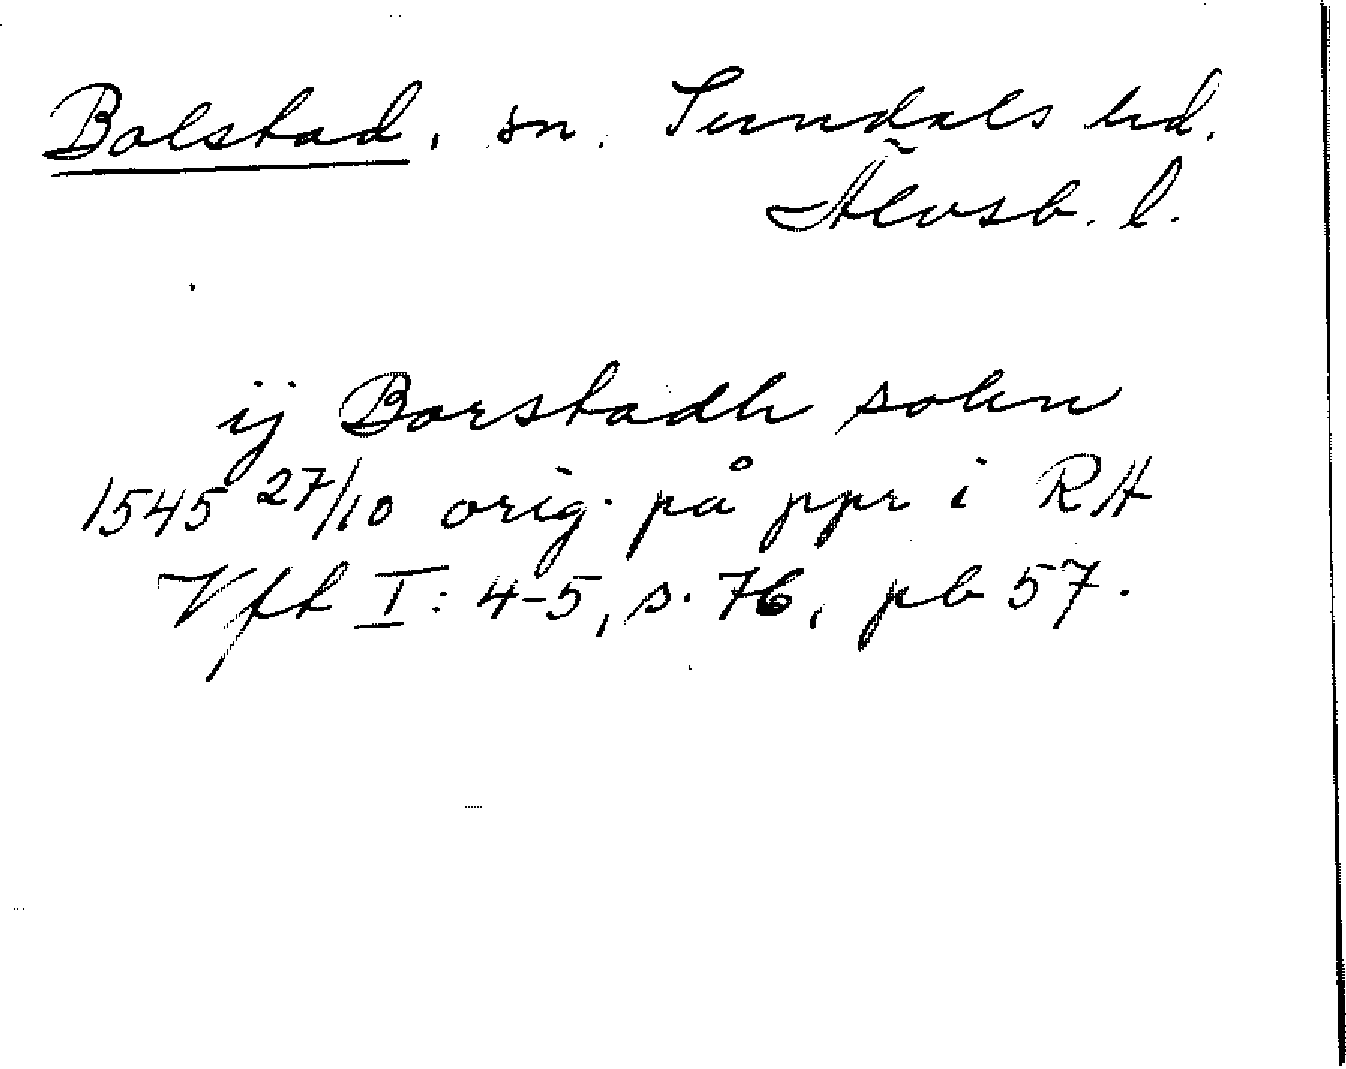 Bolstad, sn. Sundals hd.
Älvsb. l.
ij Borstadh sokn
1545 27/10 orig. på ppr i RA
Vft I: 4-5, s. 76, pb 57.